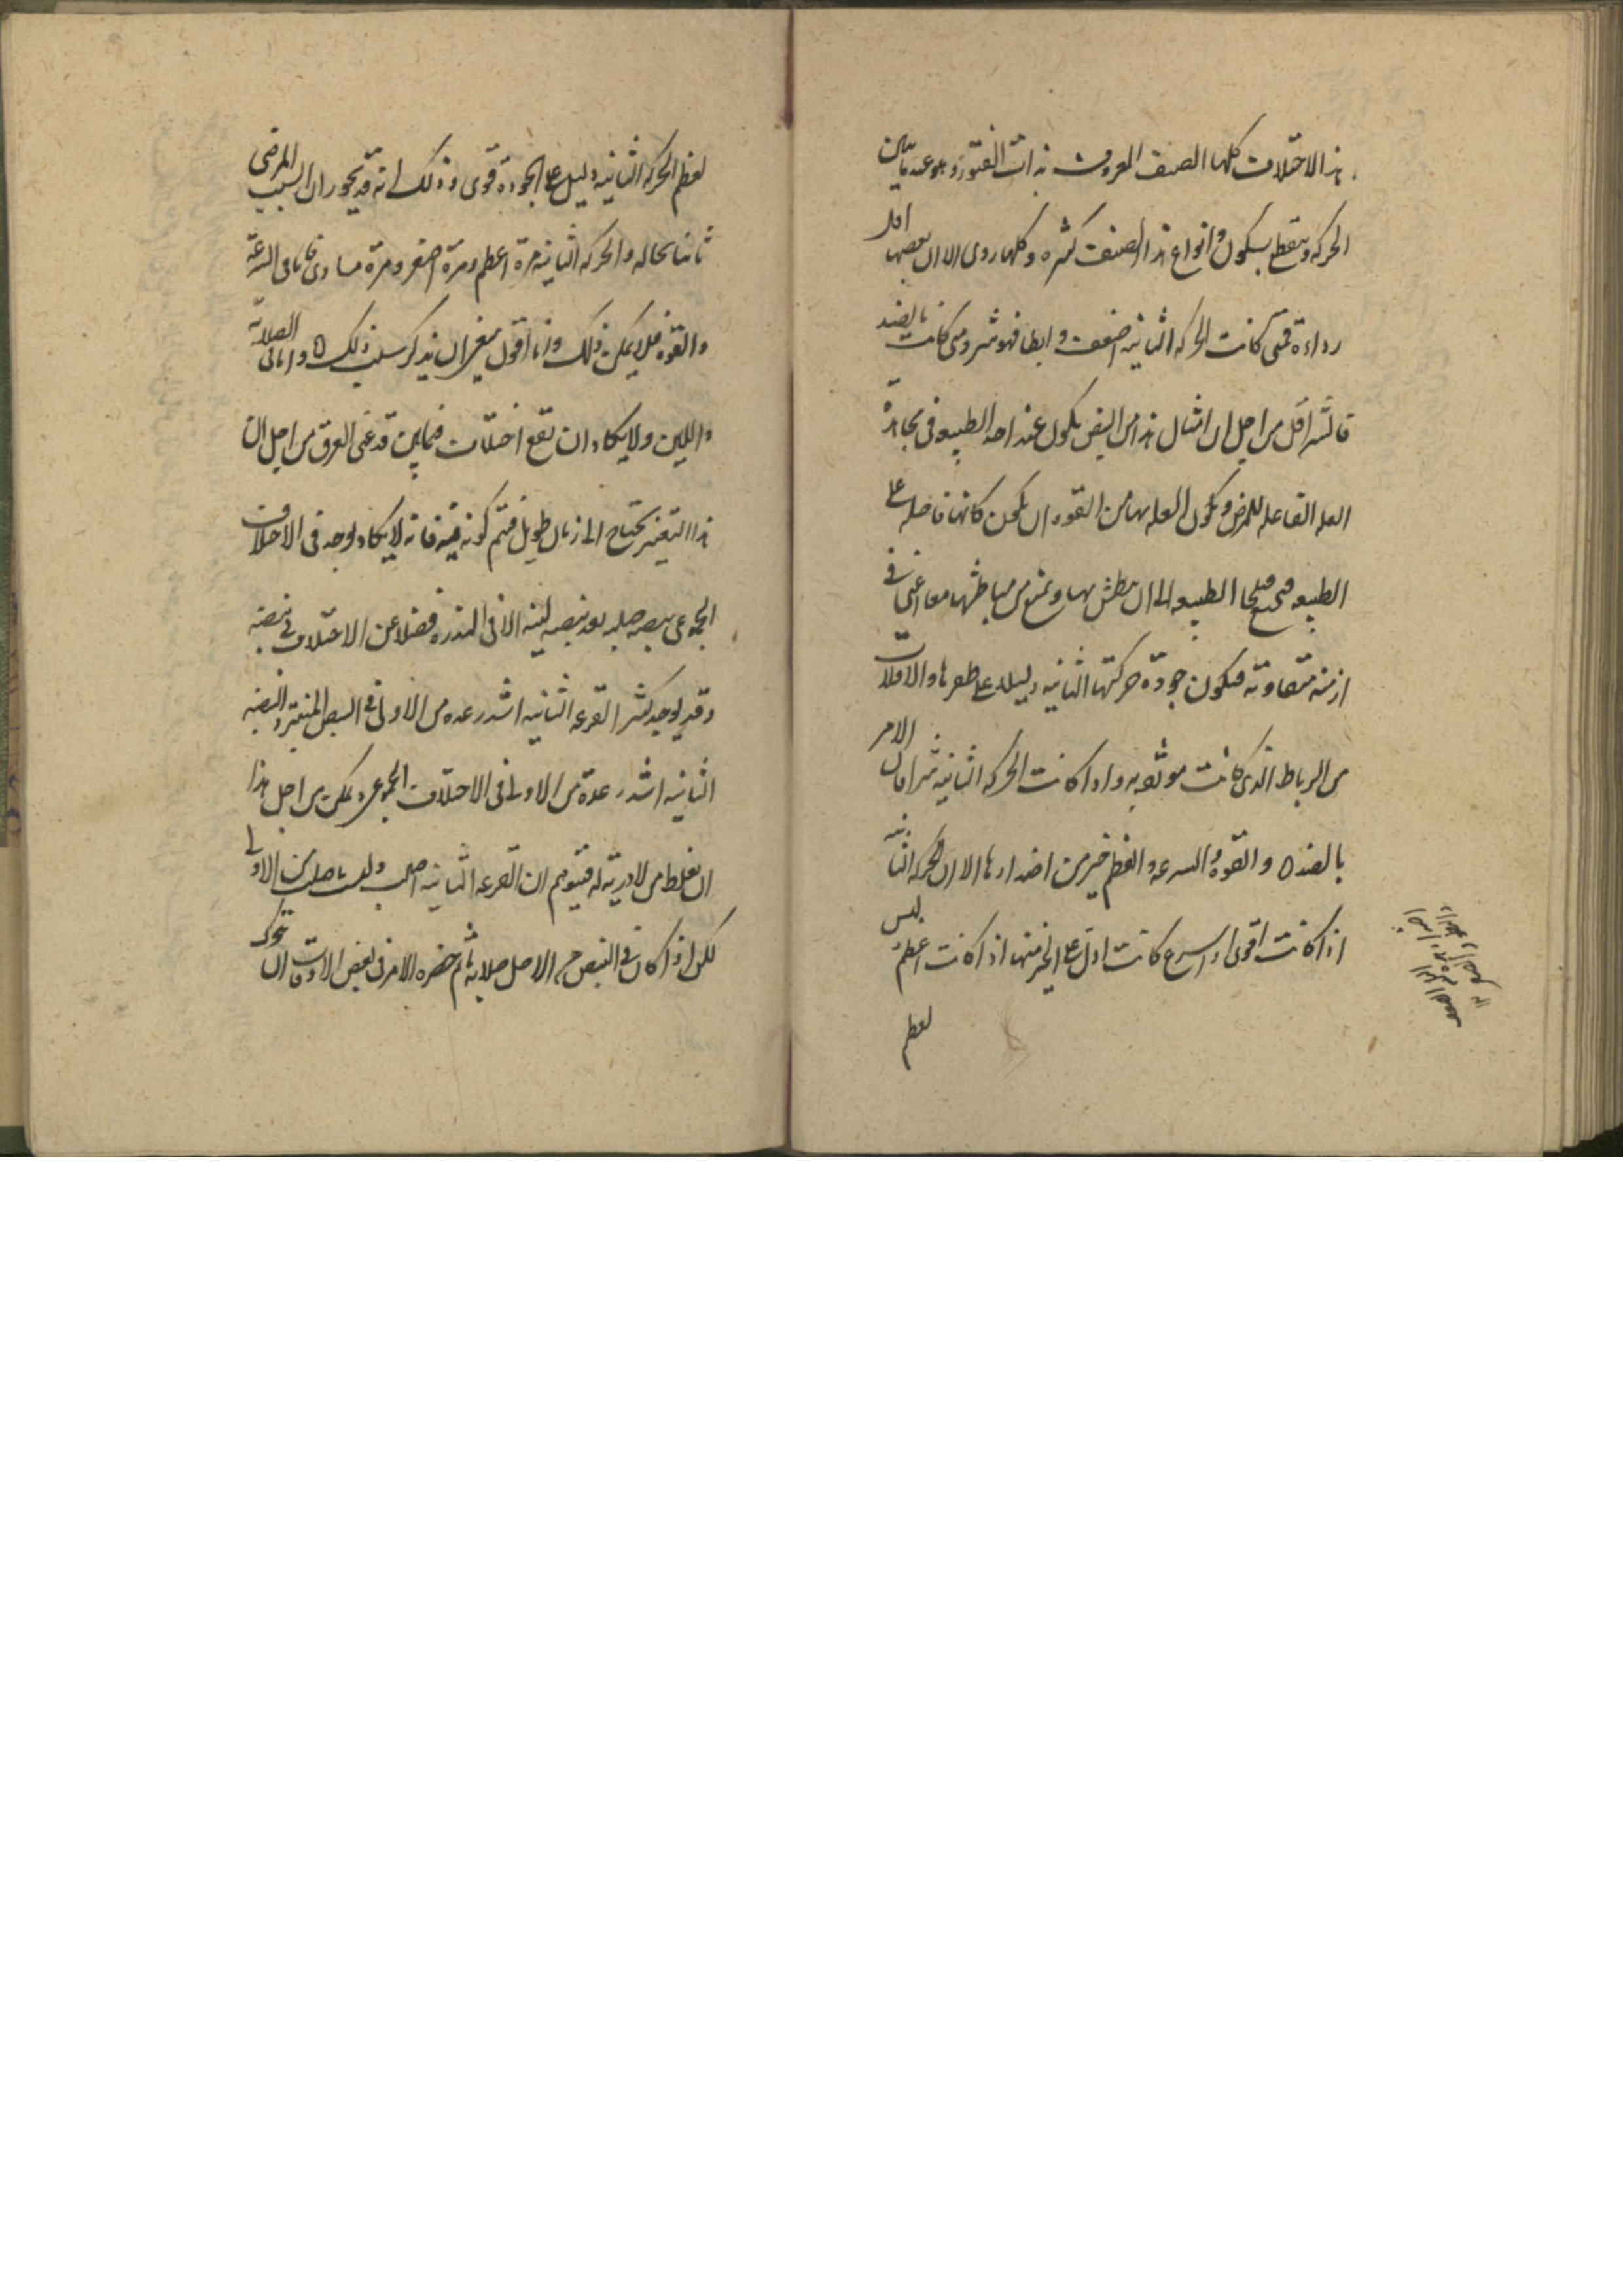 هذا الاختلاف كلها الصنف المعروف بذات الفتور وهو عندما تبين
الحركة وينقطع بسكون وانواع هذا الصنف كثيره وكلها ردى الا ان بعضها اقل
رداءة فمتى كانت الحركه الثانيه اضعف وابطا فهو شر ومتى كانت بالضد
فالشر اقل من اجل ان امثال هذا من النبض يكون عند اخذ الطبيعه فى مجاهدة
العله الفاعله للمرض وتكون العله بها من القوه ان يكون كانها فاضله على
الطبيعه الطبيعه الى ان تبطش بها وتمنع من مباطشها معا اعنى فى
ازمنه متفاوته فتكون جودة حركتها الثانيه دليلا على ظفرها والافلات
من الرباط الذى كانت موثقه به واذا كانت الحركه الثانيه شرا فان الامر
بالضد ٥ والقوة والسرعه والعظم خير من اضدادها الا ان الحركه الثانيه
اذا كانت اقوى او اسرع كانت ادل على الخير منها اذا كانت اعظم ليس
لعظم
لعظم الحركه الثانيه دليل على الجوده قوى وذلك انه قد يجوز ان السبب المرضى
ثابتا بحاله والحركه الثانيه مرة اعظم ومرة اصغر ومرة مساوى فاما فى السرعة
والقوه فلا يمكن ذلك وانا اقول من غير ان يذكر سبب ذلك ٥ واما فى الصلابة
واللين ولا يكاد ان تقع اختلاف فيما بين قرعتى العرق من اجل ان
هذا التغير يحتاج الى زمان طويل فيتم كونه فيه فانه لا يكاد يوجد فى الاختلاف
الجمعى نبضه صلبه بعد نبضه لينه الا فى الندره فضلا عن الاختلاف فى نبضة
وقد يوجد كثيرا القرعه الثانيه اشد رعده من الاولى فى النبض المنفرد والنبضه
الثانيه اشد رعدة من الاولى فى الاختلاف الجمعى ويمكن من اجل هذا
ان يغلط من لا دربة له فيتوهم ان القرعه الثانيه اصلب وليست باصلب من الاولى
لكن اذا كان فى النبض من الاصل صلابة ثم حضره الامر فى بعض الاوقات الى تحرك